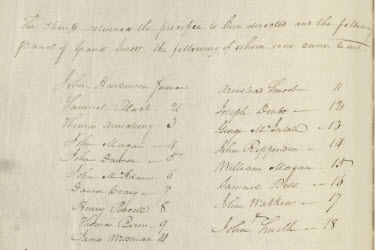 The Sheriff returned the precipe to him directed and the following
panel of Grand Jurors, the following of whom were sworn to wit
John Harbeson Foreman
Samuel Black 2
Thomas Armstrong 3
John Magan 4
John Dawson 5
John McAdams 6
David Craig 7
Henry Powell 8
9
James Wiseman 10
Armstead 11
Joseph 12
George McIntosh 13
John Rippenden 14
William Morgan 15
Samuel Bell 16
John Watkins 17
John Smith 18